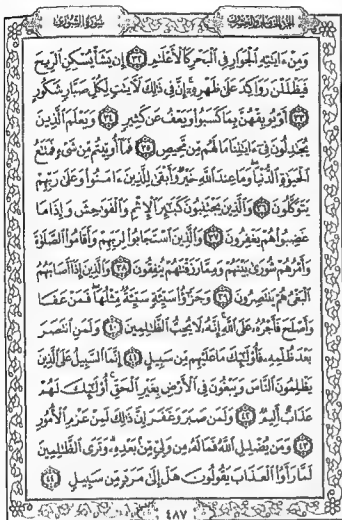 الجزء الخامس والعشرون
سورة الشورى
وَمِنْ ءَايَٰتِهِ ٱلْجَوَارِ فِى ٱلْبَحْرِ كَٱلْأَعْلَٰمِ ٣٢ إِن يَشَأْ يُسْكِنِ ٱلرِّيحَ
فَيَظْلَلْنَ رَوَاكِدَ عَلَىٰ ظَهْرِهِۦٓ إِنَّ فِى ذَٰلِكَ لَءَايَٰتٍ لِّكُلِّ صَبَّارٍ شَكُورٍ
٣٣ أَوْ يُوبِقْهُنَّ بِمَا كَسَبُوا۟ وَيَعْفُ عَن كَثِيرٍ ٣٤ وَيَعْلَمَ ٱلَّذِينَ
يُجَٰدِلُونَ فِىٓ ءَايَٰتِنَا مَا لَهُم مِّن مَّحِيصٍ ٣٥ فَمَآ أُوتِيتُم مِّن شَىْءٍ فَمَتَٰعُ
ٱلْحَيَوٰةِ ٱلدُّنْيَا وَمَا عِندَ ٱللَّهِ خَيْرٌ وَأَبْقَىٰ لِلَّذِينَ ءَامَنُوا۟ وَعَلَىٰ رَبِّهِمْ
يَتَوَكَّلُونَ ٣٦ وَٱلَّذِينَ يَجْتَنِبُونَ كَبَٰٓئِرَ ٱلْإِثْمِ وَٱلْفَوَٰحِشَ وَإِذَا مَا
غَضِبُوا۟ هُمْ يَغْفِرُونَ ٣٧ وَٱلَّذِينَ ٱسْتَجَابُوا۟ لِرَبِّهِمْ وَأَقَامُوا۟ ٱلصَّلَوٰةَ
وَأَمْرُهُمْ شُورَىٰ بَيْنَهُمْ وَمِمَّا رَزَقْنَٰهُمْ يُنفِقُونَ ٣٨ وَٱلَّذِينَ إِذَآ أَصَابَهُمُ
ٱلْبَغْىُ هُمْ يَنتَصِرُونَ ٣٩ وَجَزَٰٓؤُا۟ سَيِّئَةٍ سَيِّئَةٌ مِّثْلُهَا فَمَنْ عَفَا
وَأَصْلَحَ فَأَجْرُهُۥ عَلَى ٱللَّهِ إِنَّهُۥ لَا يُحِبُّ ٱلظَّٰلِمِينَ ٤٠ وَلَمَنِ ٱنتَصَرَ
بَعْدَ ظُلْمِهِۦ فَأُو۟لَٰٓئِكَ مَا عَلَيْهِم مِّن سَبِيلٍ ٤١ إِنَّمَا ٱلسَّبِيلُ عَلَى ٱلَّذِينَ
يَظْلِمُونَ ٱلنَّاسَ وَيَبْغُونَ فِى ٱلْأَرْضِ بِغَيْرِ ٱلْحَقِّ أُو۟لَٰٓئِكَ لَهُمْ
عَذَابٌ أَلِيمٌ ٤٢ وَلَمَن صَبَرَ وَغَفَرَ إِنَّ ذَٰلِكَ لَمِنْ عَزْمِ ٱلْأُمُورِ
٤٣ وَمَن يُضْلِلِ ٱللَّهُ فَمَا لَهُۥ مِن وَلِىٍّ مِّنۢ بَعْدِهِۦ وَتَرَى ٱلظَّٰلِمِينَ
لَمَّا رَأَوُا۟ ٱلْعَذَابَ يَقُولُونَ هَلْ إِلَىٰ مَرَدٍّ مِّن سَبِيلٍ ٤٤
٤٨٧